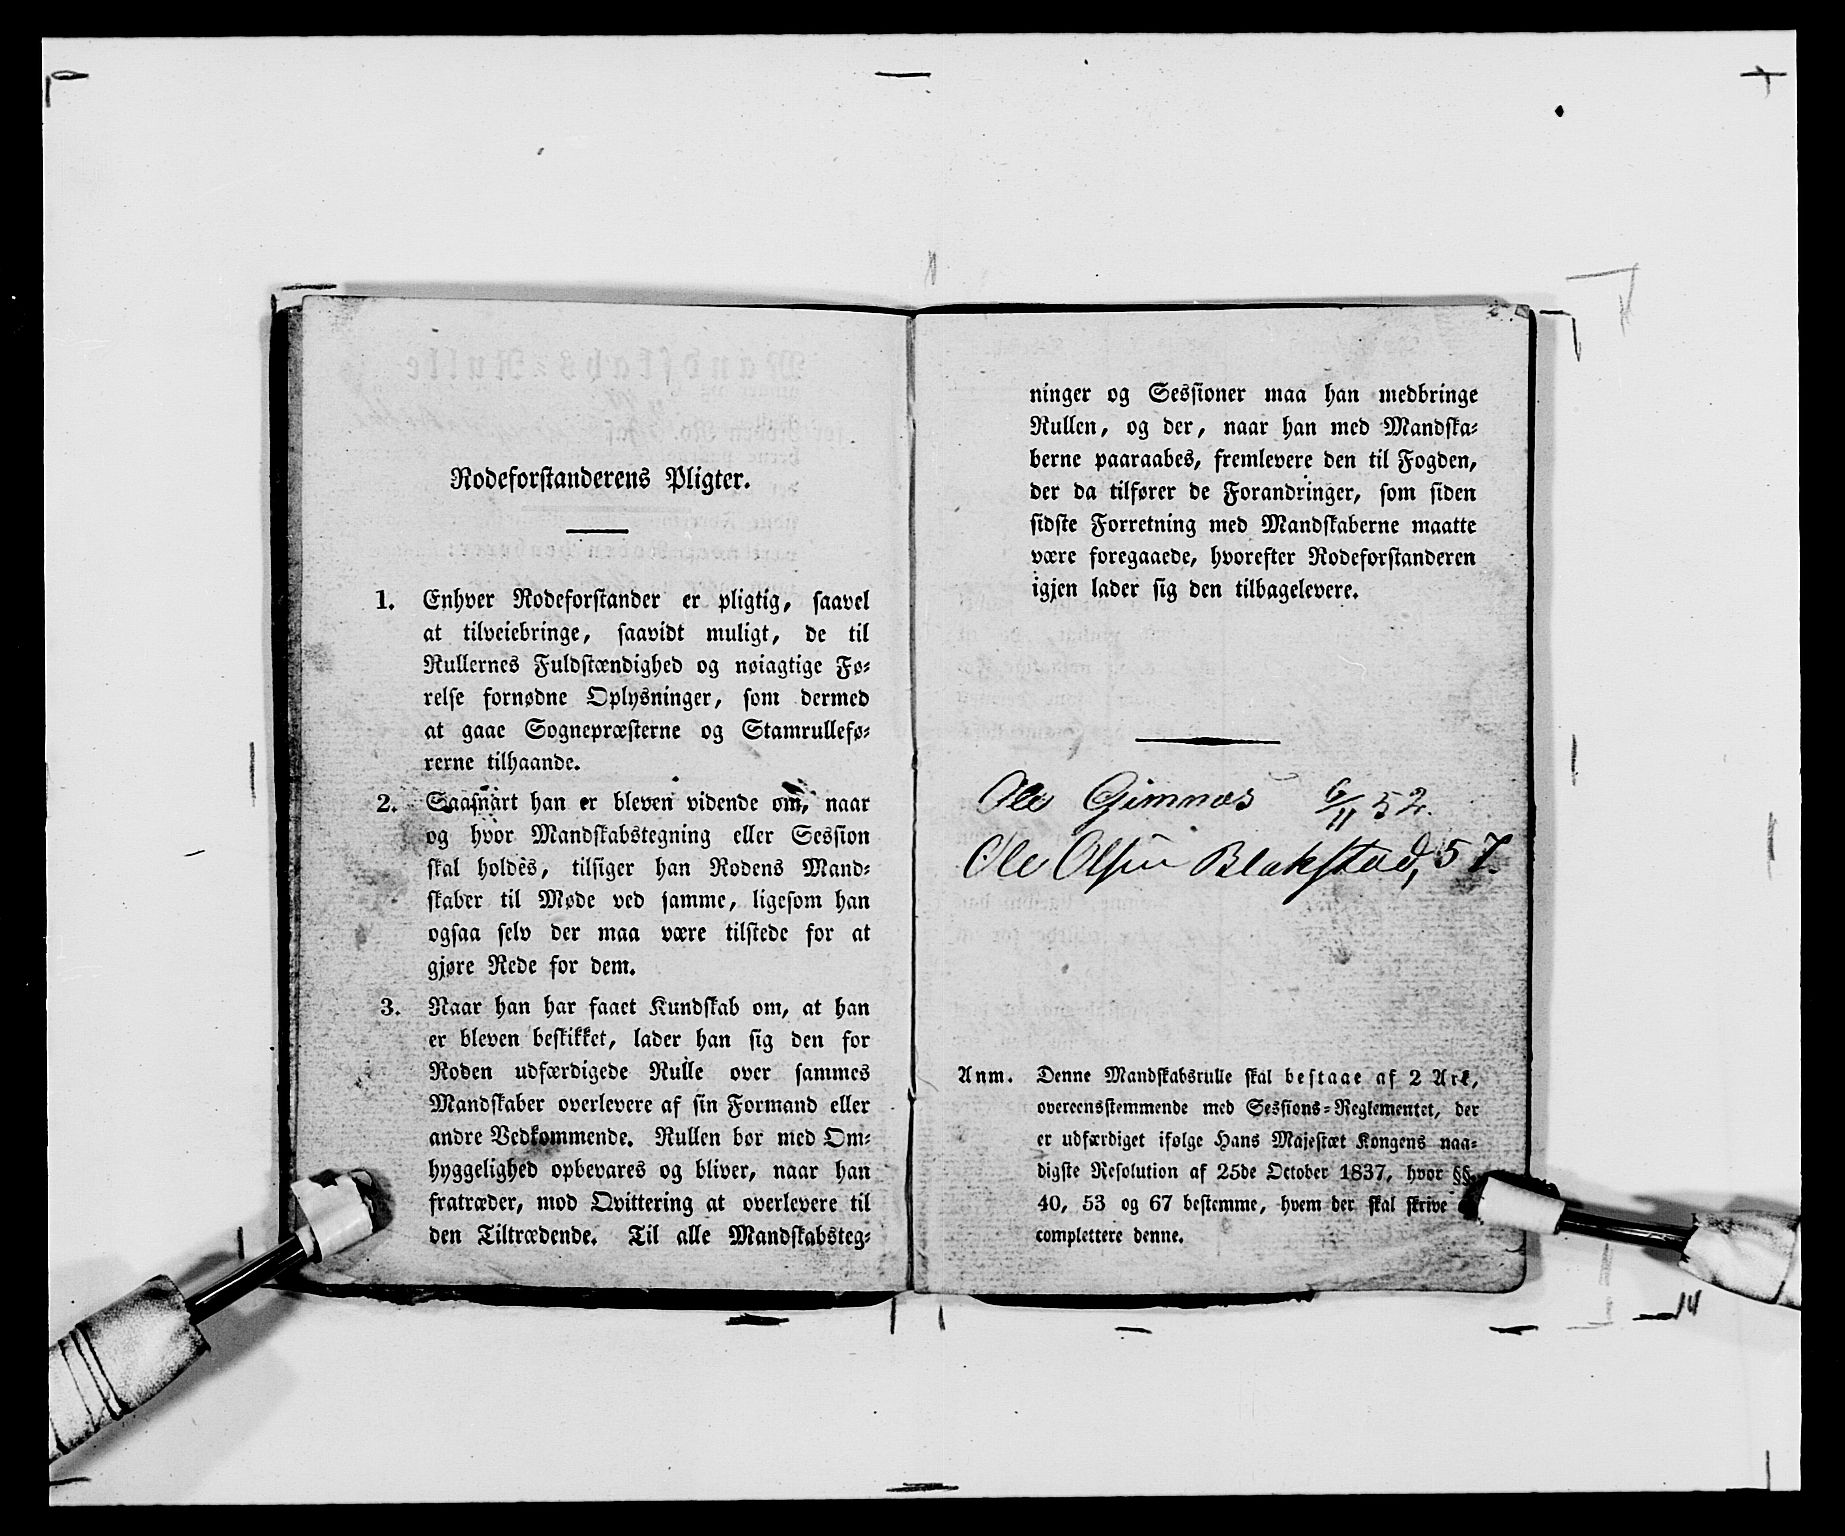 Rodeforstanderens Pligter.
1. Enhver Rodeforstander er pligtig, saavel
at tilveiebringe, saavidt muligt, de til
Rullernes Fuldstændighed og nøiagtige Fø-
relse fornødne Oplysninger, som dermed
at gaae Sognepræsterne og Stamrullefø-
rerne tilhaande.
2. Saasnart han er bleven vidende om, naar
og hvor Mandskabstegning eller Session
skal holdes, tilsiger han Rodens Mand-
skaber til Møde ved samme, ligesom han
ogsaa selv der maa være tilstede for at
gjøre Rede for dem.
3. Naar han har faaet Kundskab om, at han
er bleven beskikket, lader han sig den for
Roden udfærdigede Rulle over sammes
Mandskaber overlevere af sin Formand eller
andre Vedkommende. Rullen bør med Om-
hyggelighed opbevares og bliver, naar han
fratræder, mod Qvittering at overlevere til
den Tiltrædende. Til alle Mandskabsteg-
ninger og Sessioner maa han medbringe
Rullen, og der, naar han med Mandska-
berne paaraabes, fremlevere den til Fogden,
der da tilfører de Forandringer, som siden
sidste Forretning med Mandskaberne maatte
være foregaaede, hvorefter Rodeforstanderen
igjen lader sig den tilbagelevere.
Ole Gimnæs 6/11 52.
Ole Olsen Blakstad, 57.
Anm. Denne Mandskabsrulle skal bestaae af 2 Ark,
overeensstemmende med Sessions-Reglementet, der
er udfærdiget ifølge Hans Majestæt Kongens naa-
digste Resolution af 25de October 1837, hvor §§.
40, 53 og 67 bestemme, hvem der skal skrive
complettere denne.
14